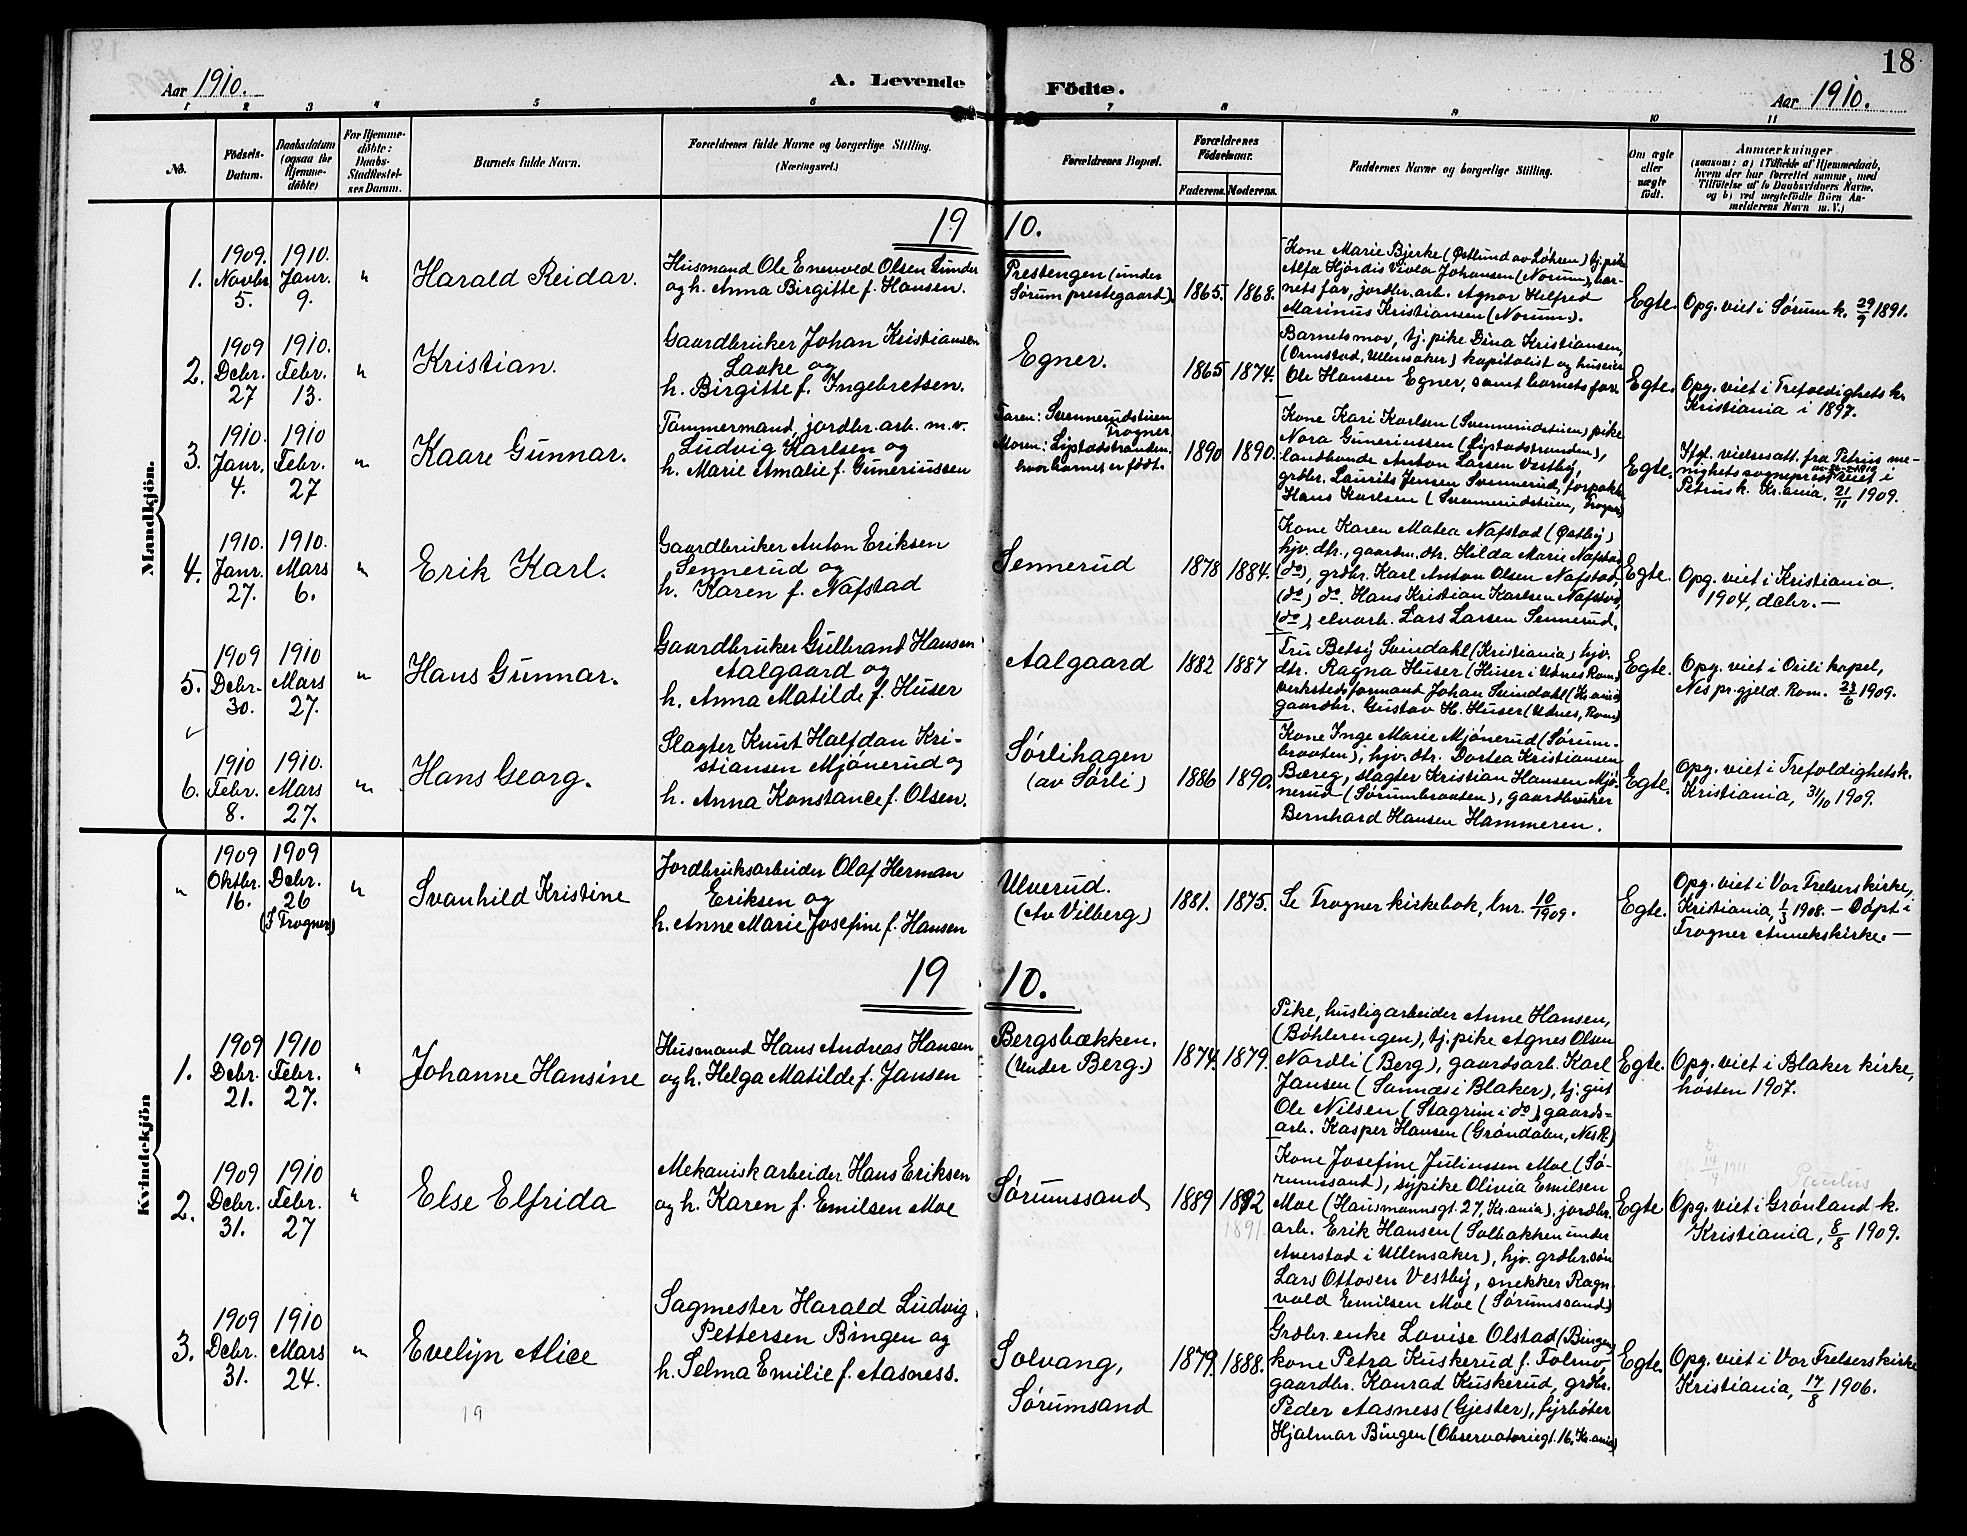 18
Aar 1910.
A. Levende Födte.
Aar 1910.
1 2 3 4 5 6 7 8 9 10 11
No.
Födsels-
Datum.
Daabsdatum
(ogsaa for
Hjemme-
döbte)
For Hjemme-
döbte:
Daabs-
Stadfæstel-
ses Datum.
Barnets fulde Navn.
Forældrenes fulde Navne og borgerlige Stilling.
(Næringsvei.)
Forældrenes Bopæl.
Forældrenes
Födselsaar.
Faderens. Moderens.
Faddernes Navne og borgerlige Stilling.
Om ægte
eller
uægte
födt.
Anmærkninger
(saasom: a) i Tilfælde af Hjemmedaab,
hvem der har forrettet samme, med
Tilföielse af to Daabsvidners Navne,
og b) ved uægtefödte Börn An-
melderens Navn m. V.)
Mandkjön.
1910.
1.
1909.
Novbr.
5.
1910.
Janr.
9.
"
Harald Reidar.
Husmand Ole Enevold Olsen Sunder
og h. Anna Birgitte f. Hansen.
Prestengen (under
Sørum prestegaard)
1865. 1868.
Kone Marie Bjerke (Østlund av Løhren) tj. pike
Alfa Hjördis Viola Johansen (Norum), bar-
nets far, jordbr. arb. Agnor Helfred
Marinus Kristiansen (Norum).
Egte.
Opg. viet i Sørum k. 29/9 1891.
2.
1909
Debr.
27
1910.
Febr.
13.
"
Kristian.
Gaardbruker Johan Kristiansen
Laake og
h. Birgitte f. Ingebretsen.
Egner.
1865 1874.
Barnets mor, tj. pike Dina Kristiansen,
(Ormstad, Ullensaker) kapitalist og huseier
Ole Hansen Egner, samt barnets far.
Egte.
Opg. viet i Trefoldighets k.
Kristiania i 1897.
3.
1910.
Janr.
4.
1910
Febr.
27
"
Kaare Gunnar.
Tømmermand, jordbr. arb. m.v.
Ludvig Karlsen og
h. Marie Amalie f. Guneriussen
Faren: Svennerudstuen
Frogner
Moren: Lystadstranden,
hvor barnet er født.
1890 1890.
Kone Kari Karlsen (Svennerudstuen) pike
Nora Guneriussen (Lystadstranden),
landhandl. Anton Larsen Vestby,
grdbr. Laurits Jensen Svennerud, forpakter
Hans Karlsen (Svennerudstuen, Frogner)
Egte.
Iføl. vielsesatt. fra Petrus me-
nighets sogneprest viet i
Petrus k. Kr.ania, 21/11 1909.
4.
1910.
Janr.
27.
1910.
Mars
6.
"
Erik Karl.
Gaardbruker Anton Eriksen
Sennerud og
h. Karen f. Nafstad
Sennerud
1878 1884.
Kone Karen Matea Nafstad (Østby)
hjv. dtr., gaardm. dtr. Hilda Marie Nafstad
(do), grdbr. Karl Anton Olsen Nafstad,
(do), do. Hans Kristian Karlsen Nafstad,
(do), elvarb. Lars Larsen Sennerud.
Egte.
Opg. viet i Kristiania
1904, debr. —
5.
1909
Debr.
30.
1910
Mars
27.
"
Hans Gunnar.
Gaardbruker Gulbrand Hansen
Aalgaard og
h. Anna Matilde f. Huser
Aalgaard
1882 1887
Fru Betsy Svindahl (Kristiania) hjv.
dtr. Ragna Huser (Huser i Udnes Rom)
verkstedsformand Johan Svindahl (Kr.ania)
gaardbr. Gustav H. Huser (Udnes, Rom)
Egte.
Opg. viet i Ouli kapel,
Nes pr.gjeld. Rom. 23/6 1909.
6.
1910
Febr.
8.
1910.
Mars
27.
"
Hans Georg.
Slagter Knut Halfdan Kri-
stiansen Mjönerud og
h. Anna Konstance f. Olsen.
Sørlihagen
(av Sørli)
1886 1890.
Kone Inge Marie Mjönerud (Sørum-
braaten), hjv. dtr. Dortea Kristiansen
Bæreg, slagter Kristian Hansen Mjö-
nerud (Sørumbraaten), gaardbruker
Bernhard Hansen Hammeren.
Egte.
Opg. viet i Trefoldighetsk.
Kristiania, 31/10 1909.
Kvindekjön
"
1909
Oktbr.
16.
1909
Debr.
26
(I Frogner)
"
Svanhild Kristine
Jordbruksarbeider Olaf Herman
Eriksen og
h. Anne Marie Josefine f. Hansen
Ulverud.
(Av Vilberg)
1881. 1875.
Se Frogner kirkebok, lnr. 10/1909.
Egte.
Opg. viet i Vor Frelsers kirke,
Kristiania, 1/3 1908. — Døpt i
Frogner Annekskirke. —
1910.
1.
1909
Debr.
21.
1910
Febr.
27.
"
Johanne Hansine
Husmand Hans Andreas Hansen
og h. Helga Matilde f. Jansen
Bergsbækken.
(Under Berg.)
1874. 1879.
Pike, husligarbeider Anne Hansen,
(Böhlerengen), tj. pike Agnes Olsen
Nordli (Berg), gaardsarb. Karl
Jansen (Sannæs i Blaker), tj. gut
Ole Nilsen (Stagrim i do), gaards-
arb. Kasper Hansen (Gröndalen, Nes R.)
Egte.
Opg. viet i Blaker kirke,
høsten 1907.
2.
1909
Debr.
31.
1910
Febr.
27
"
Else Elfrida
Mekanisk arbeider Hans Eriksen
og h. Karen f. Emilsen Moe
Sørumssand
1889 1892
1891.
Kone Josefine Juliussen Moe (Sø-
rumssand), sypike Olivia Emilsen
Moe (Hausmannsgt. 27, Kr.ania), jordbr.
arb. Erik Hansen (Solbakken under
Averstad i Ullensaker), hjv. grdbr. søn
Lars Ottosen Vestby, snekker Ragn-
vald Emilsen Moe (Sørumssand)
Egte
Paulus
Opg. viet i Grønland k.
Kristiania, 8/8 1909.
3.
1909
Debr.
31.
1910
Mars
24.
"
Evelyn Alice
Sagmester Harald Ludvig
Pettersen Bingen og
h. Selma Emilie f. Aasness.
Solvang,
Sørumsand
1879. 1888.
Grdbr. enke Lovise Olstad (Bingen)
kone Petra Kuskerud f. Tolmo
gaardbr. Konrad Kuskerud, grdbr.
Peder Aasness (Gjester), fyrbøter
Hjalmar Bingen (Observatoriegt. 16, Kr.ania)
Egte.
Opg. viet i Vor Frelsers kirke
Kristiania, 17/8 1906.
19